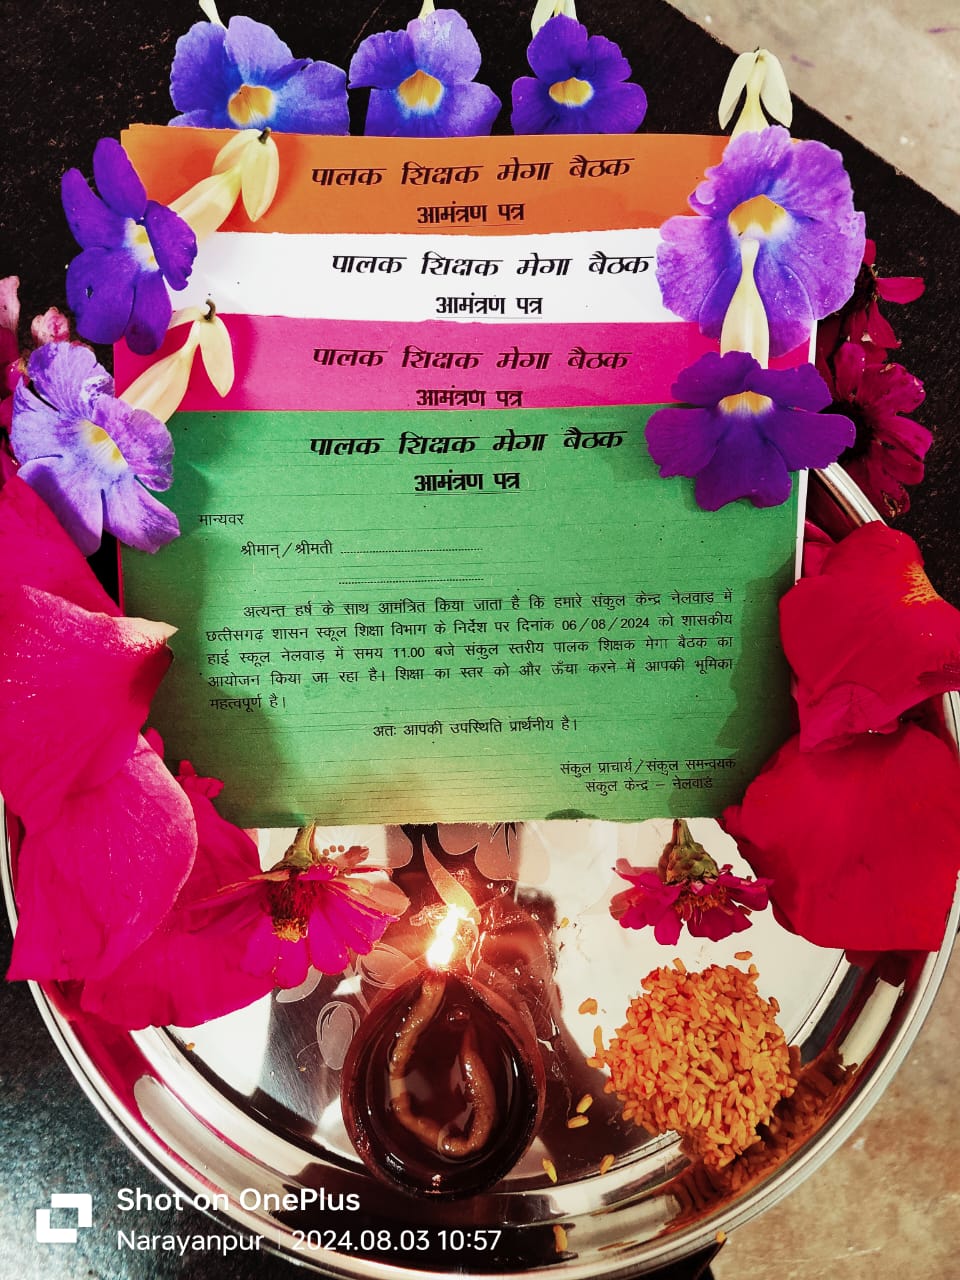 पालक शिक्षक मेगा बैठक
आमंत्रण पत्र
पालक शिक्षक मेगा बैठक
आमंत्रण पत्र
पालक शिक्षक मेगा बैठक
आमंत्रण पत्र
पालक शिक्षक मेगा बैठक
आमंत्रण पत्र
मान्यवर
श्रीमान्/श्रीमती ........................................
........................................
अत्यन्त हर्ष के साथ आमंत्रित किया जाता है कि हमारे संकुल केन्द्र नेलवाड़ में
छत्तीसगढ़ शासन स्कूल शिक्षा विभाग के निर्देश पर दिनांक 06/08/2024 को शासकीय
हाई स्कूल नेलवाड़ में समय 11.00 बजे संकुल स्तरीय पालक शिक्षक मेगा बैठक का
आयोजन किया जा रहा है। शिक्षा का स्तर को और ऊँचा करने में आपकी भूमिका
महत्वपूर्ण है।
अतः आपकी उपस्थिति प्रार्थनीय है।
संकुल प्राचार्य/संकुल समन्वयक
संकुल केन्द्र – नेलवाड़
Shot on OnePlus
Narayanpur | 2024.08.03 10:57